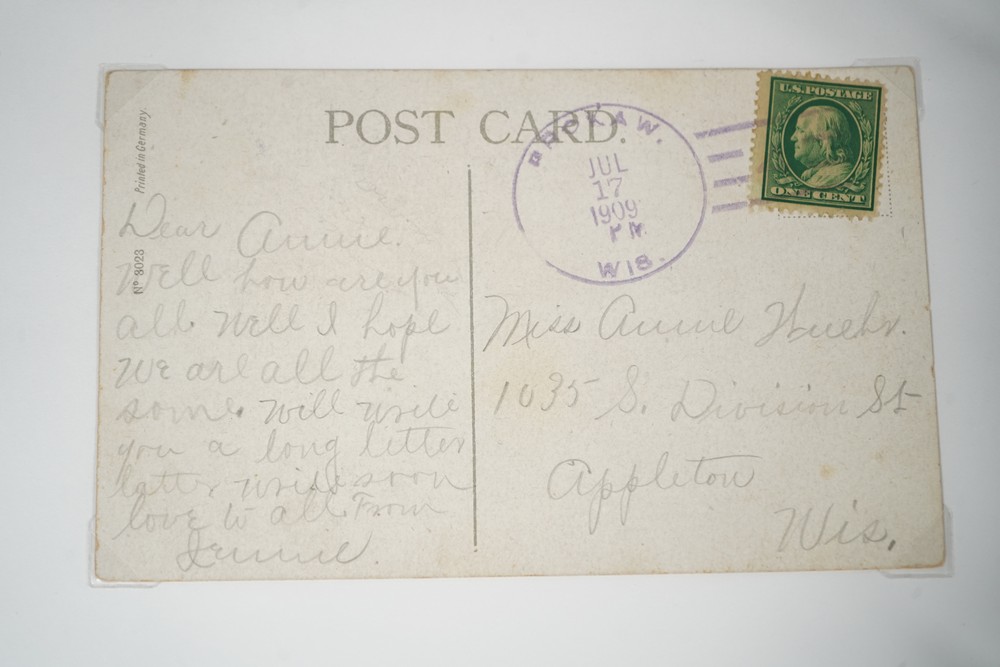 POST CARD.
Printed in Germany.
Nº 3023
BROKAW.
JUL
17
1909
PM
WIS.
U.S. POSTAGE
ONE CENT
Dear Annie.
Well how are you
all. Well I hope
We are all the
some. Will write
you a long letter
latter write soon
love to all. From
Jennie
Miss Annie Huehr.
1035 S. Division St
Appleton
Wis.